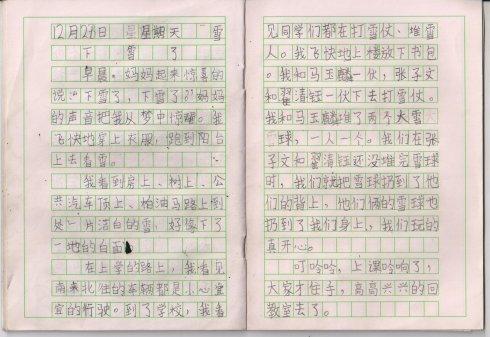 12月28日 星期天 雪
下雪了
早晨。妈妈起来惊喜的
说:“下雪了,下雪了!”妈妈
的声音把我从梦中惊醒。我
飞快地穿上衣服,跑到阳台
上去看雪。
我看到房上、树上、公
共汽车顶上、柏油马路上到
处一片洁白的雪,好像下了
一地的白面
在上学的路上,我看见
南来北往的车辆都是小心宜
宜的行驶。到了学校,我看
见同学们都在打雪仗、堆雪
人。我飞快地上楼放下书包
。我和马玉麟一伙,张子文
和翟清钰一伙下去打雪仗。
我和马玉麟堆了两个大雪
球,一人一个。我们在张
子文和翟清钰还没堆完雪球
时,我们就把雪球扔到了他
们的背上,他们俩的雪球也
扔到了我们身上,我们玩的
真开心。
叮呤呤,上课呤响了,
大家才住手,高高兴兴的回
教室去了。